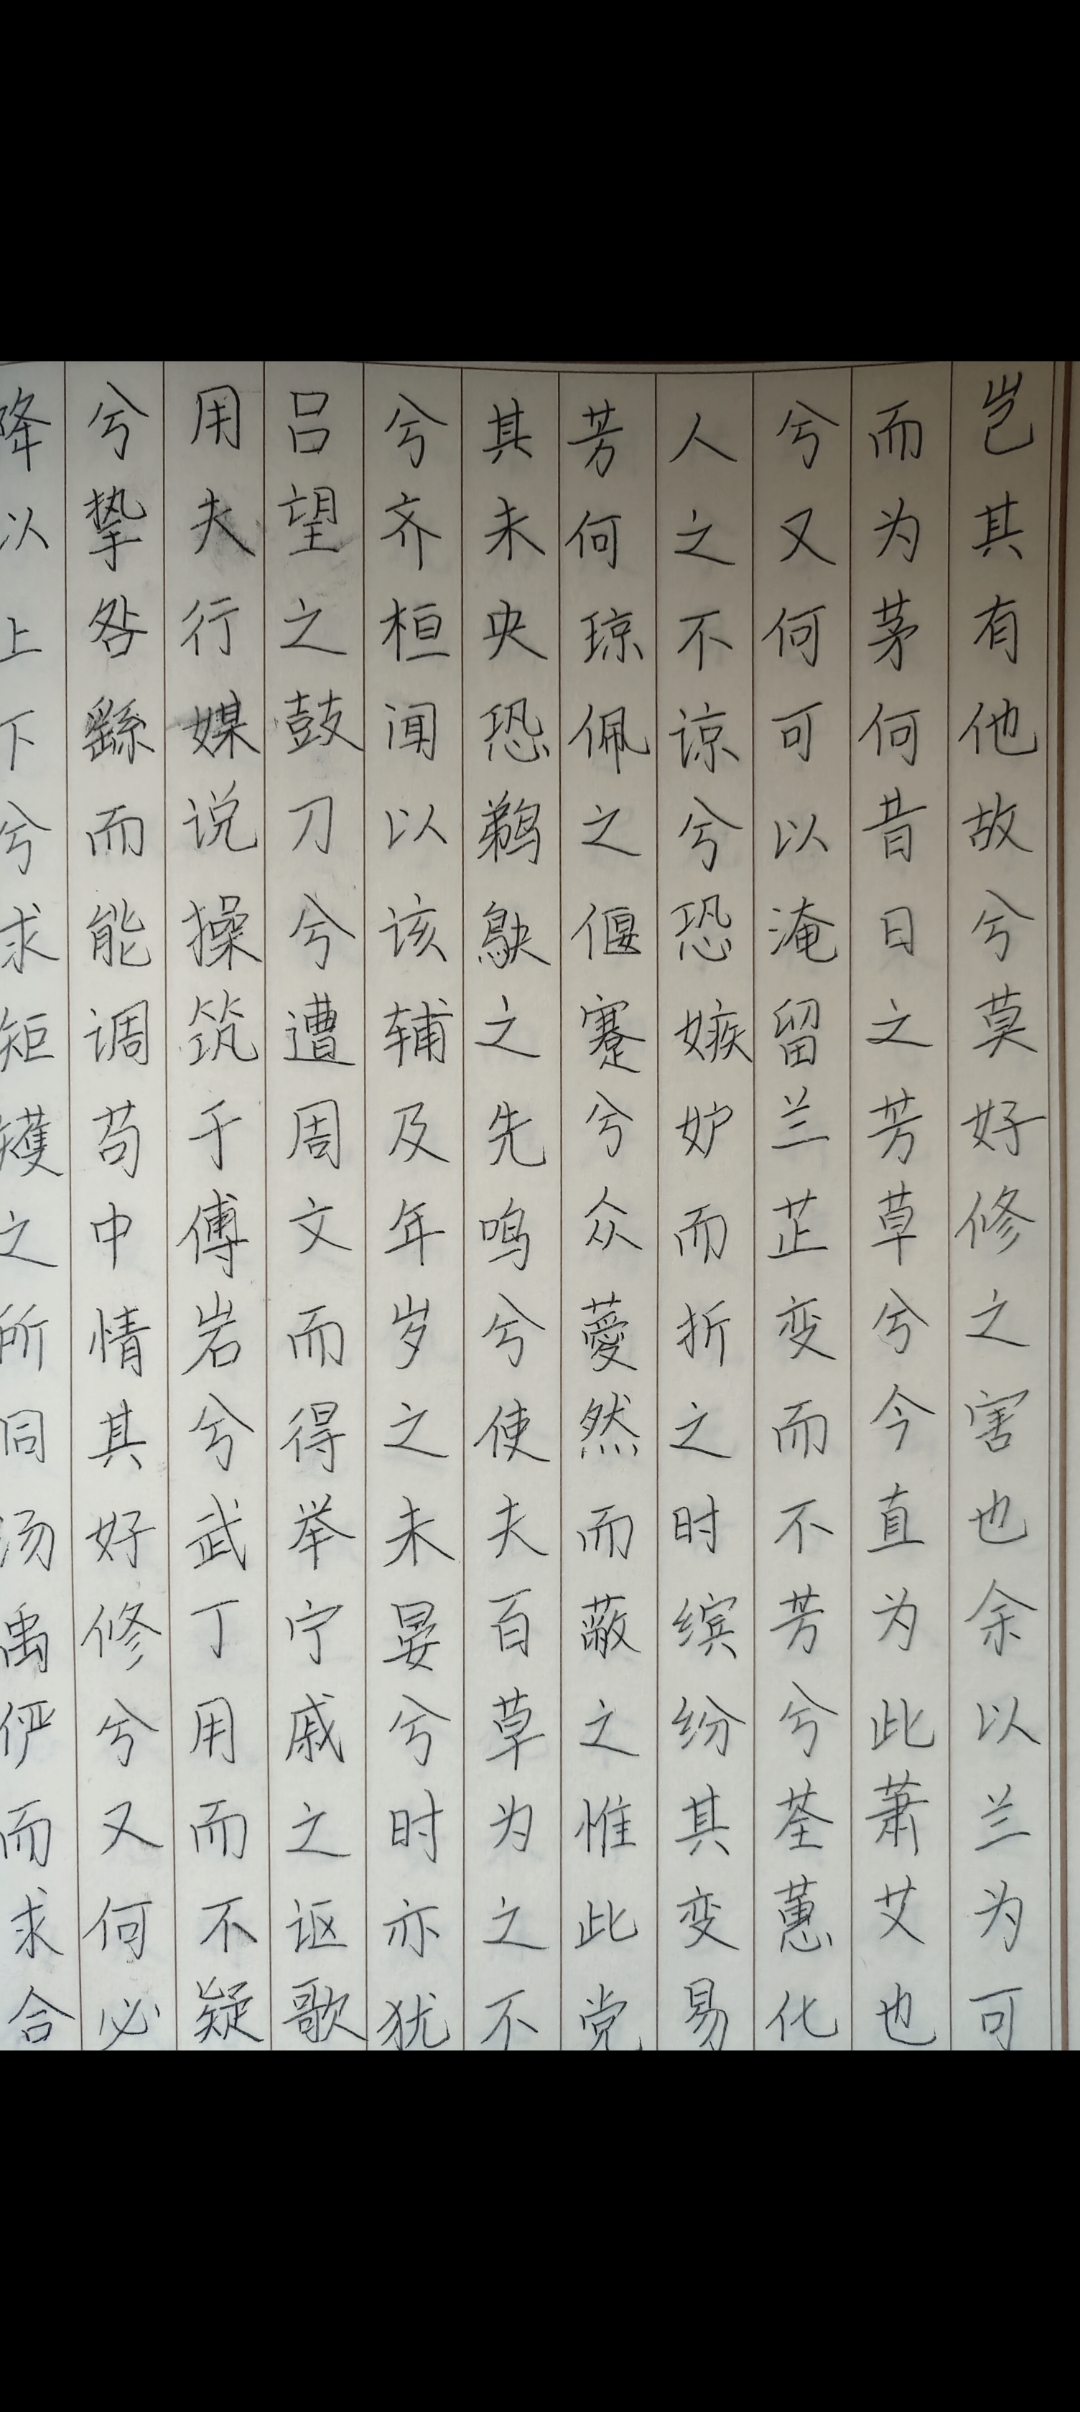 岂其有他故兮莫好修之害也余以兰为可
而为茅何昔日之芳草兮今直为此萧艾也
兮又何可以淹留兰芷变而不芳兮荃蕙化
人之不谅兮恐嫉妒而折之时缤纷其变易
芳何琼佩之偃蹇兮众薆然而蔽之惟此党
其未央恐鹈鴃之先鸣兮使夫百草为之不
兮齐桓闻以该辅及年岁之未晏兮时亦犹
吕望之鼓刀兮遭周文而得举宁戚之讴歌
用夫行媒说操筑于傅岩兮武丁用而不疑
兮挚咎繇而能调苟中情其好修兮又何必
降以上下兮求矩矱之所同汤禹俨而求合